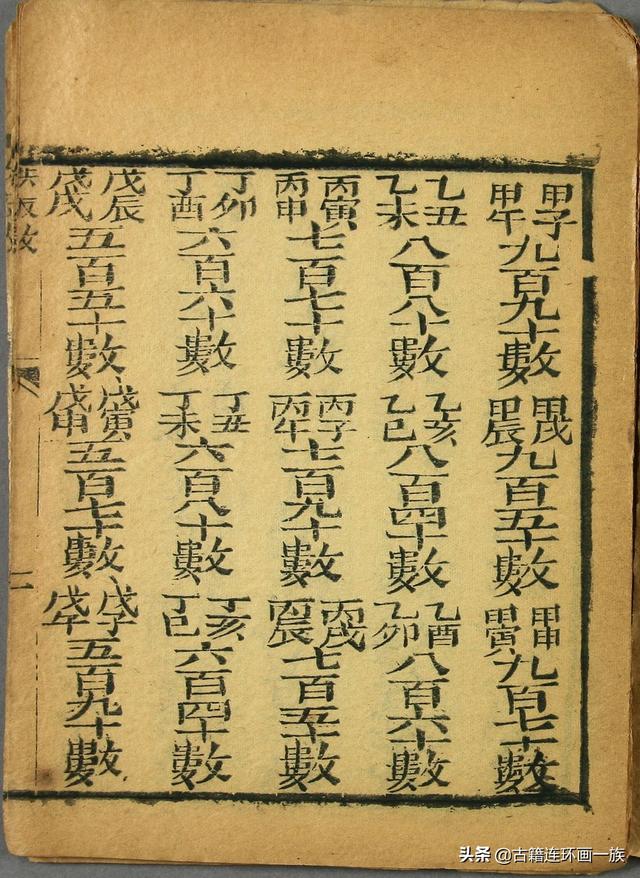 甲子甲午九百九十數甲戌甲辰九百五十數甲申甲寅九百七十數
乙丑乙未八百八十數乙亥乙巳八百四十數乙酉乙卯八百六十數
丙寅丙申七百七十數丙子丙午七百九十數丙戌丙辰七百五十數
丁卯丁酉六百六十數丁丑丁未六百八十數丁亥丁巳六百四十數
戊辰戊戌五百五十數戊寅戊申五百七十數戊子戊午五百九十數
头条 @古籍连环画一族